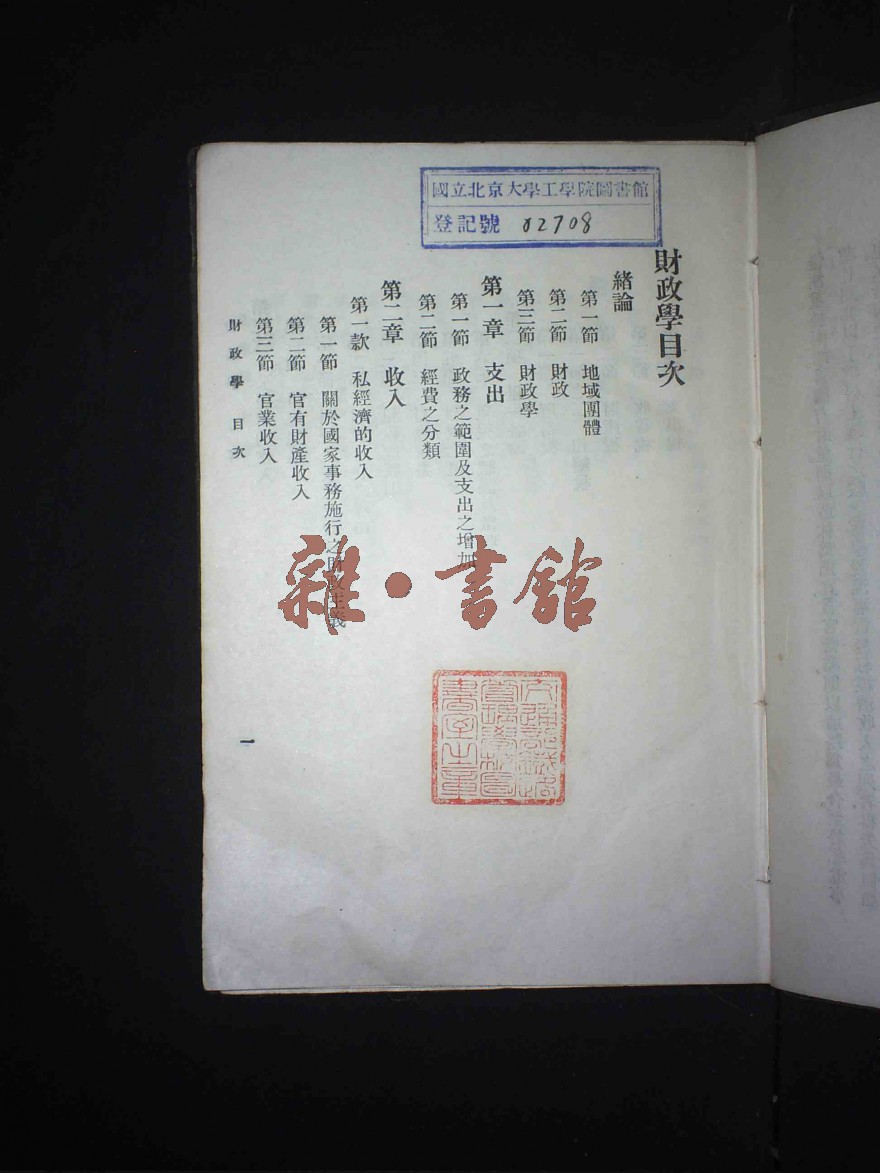 國立北京大學工學院圖書館
登記號 02708
財政學目次
緒論
第一節 地域團體
第二節 財政
第三節 財政學
第一章 支出
第一節 政務之範圍及支出之增加
第二節 經費之分類
第二章 收入
第一款 私經濟的收入
第一節 關於國家事務施行之財政主義
第二節 官有財產收入
第三節 官業收入
財政學 目次
一
雜·書館